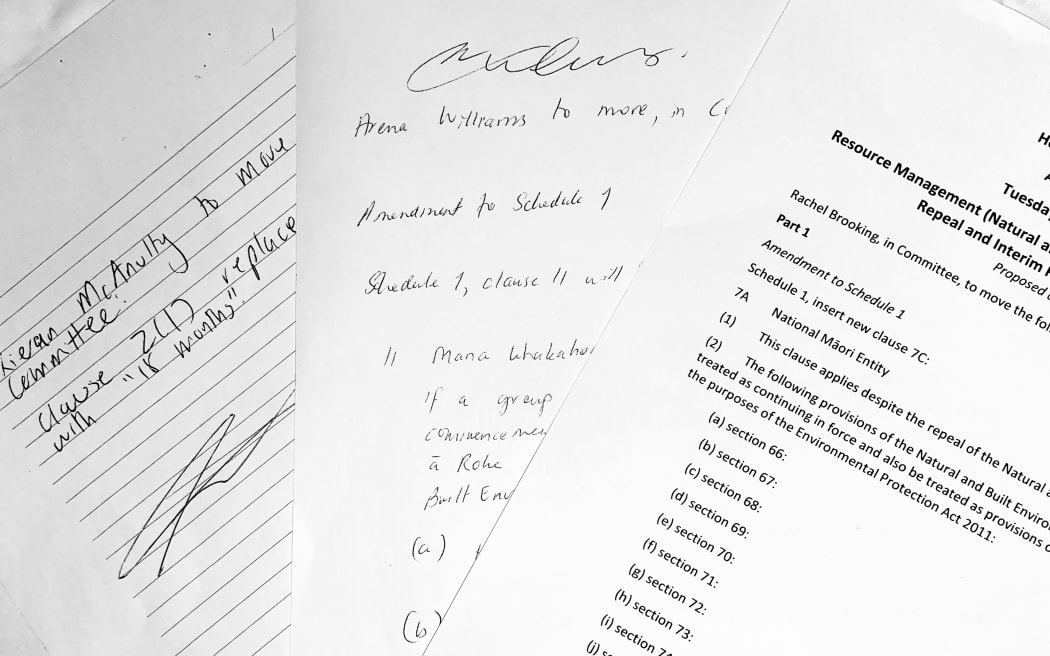 Kieran McAnulty to move
Committee:
Clause 2(1) replace
with "18 months".
Arena Williams to move, in Co
Amendment to Schedule 1
Schedule 1, clause 11 will
11 Mana Whakaho
If a group
commencemen
ā Rohe
Built Env
(a)
(b)
Tuesday
Resource Management (Natural a
Repeal and Interim
Proposed
Rachel Brooking, in Committee, to move the foll
Part 1
Amendment to Schedule 1
Schedule 1, insert new clause 7C:
7A National Māori Entity
(1) This clause applies despite the repeal of the Natural a
(2) The following provisions of the Natural and Built Environ
treated as continuing in force and also be treated as provisions o
the purposes of the Environmental Protection Act 2011:
(a) section 66:
(b) section 67:
(c) section 68:
(d) section 69:
(e) section 70:
(f) section 71:
(g) section 72:
(h) section 73:
(i) section 74
(j) se